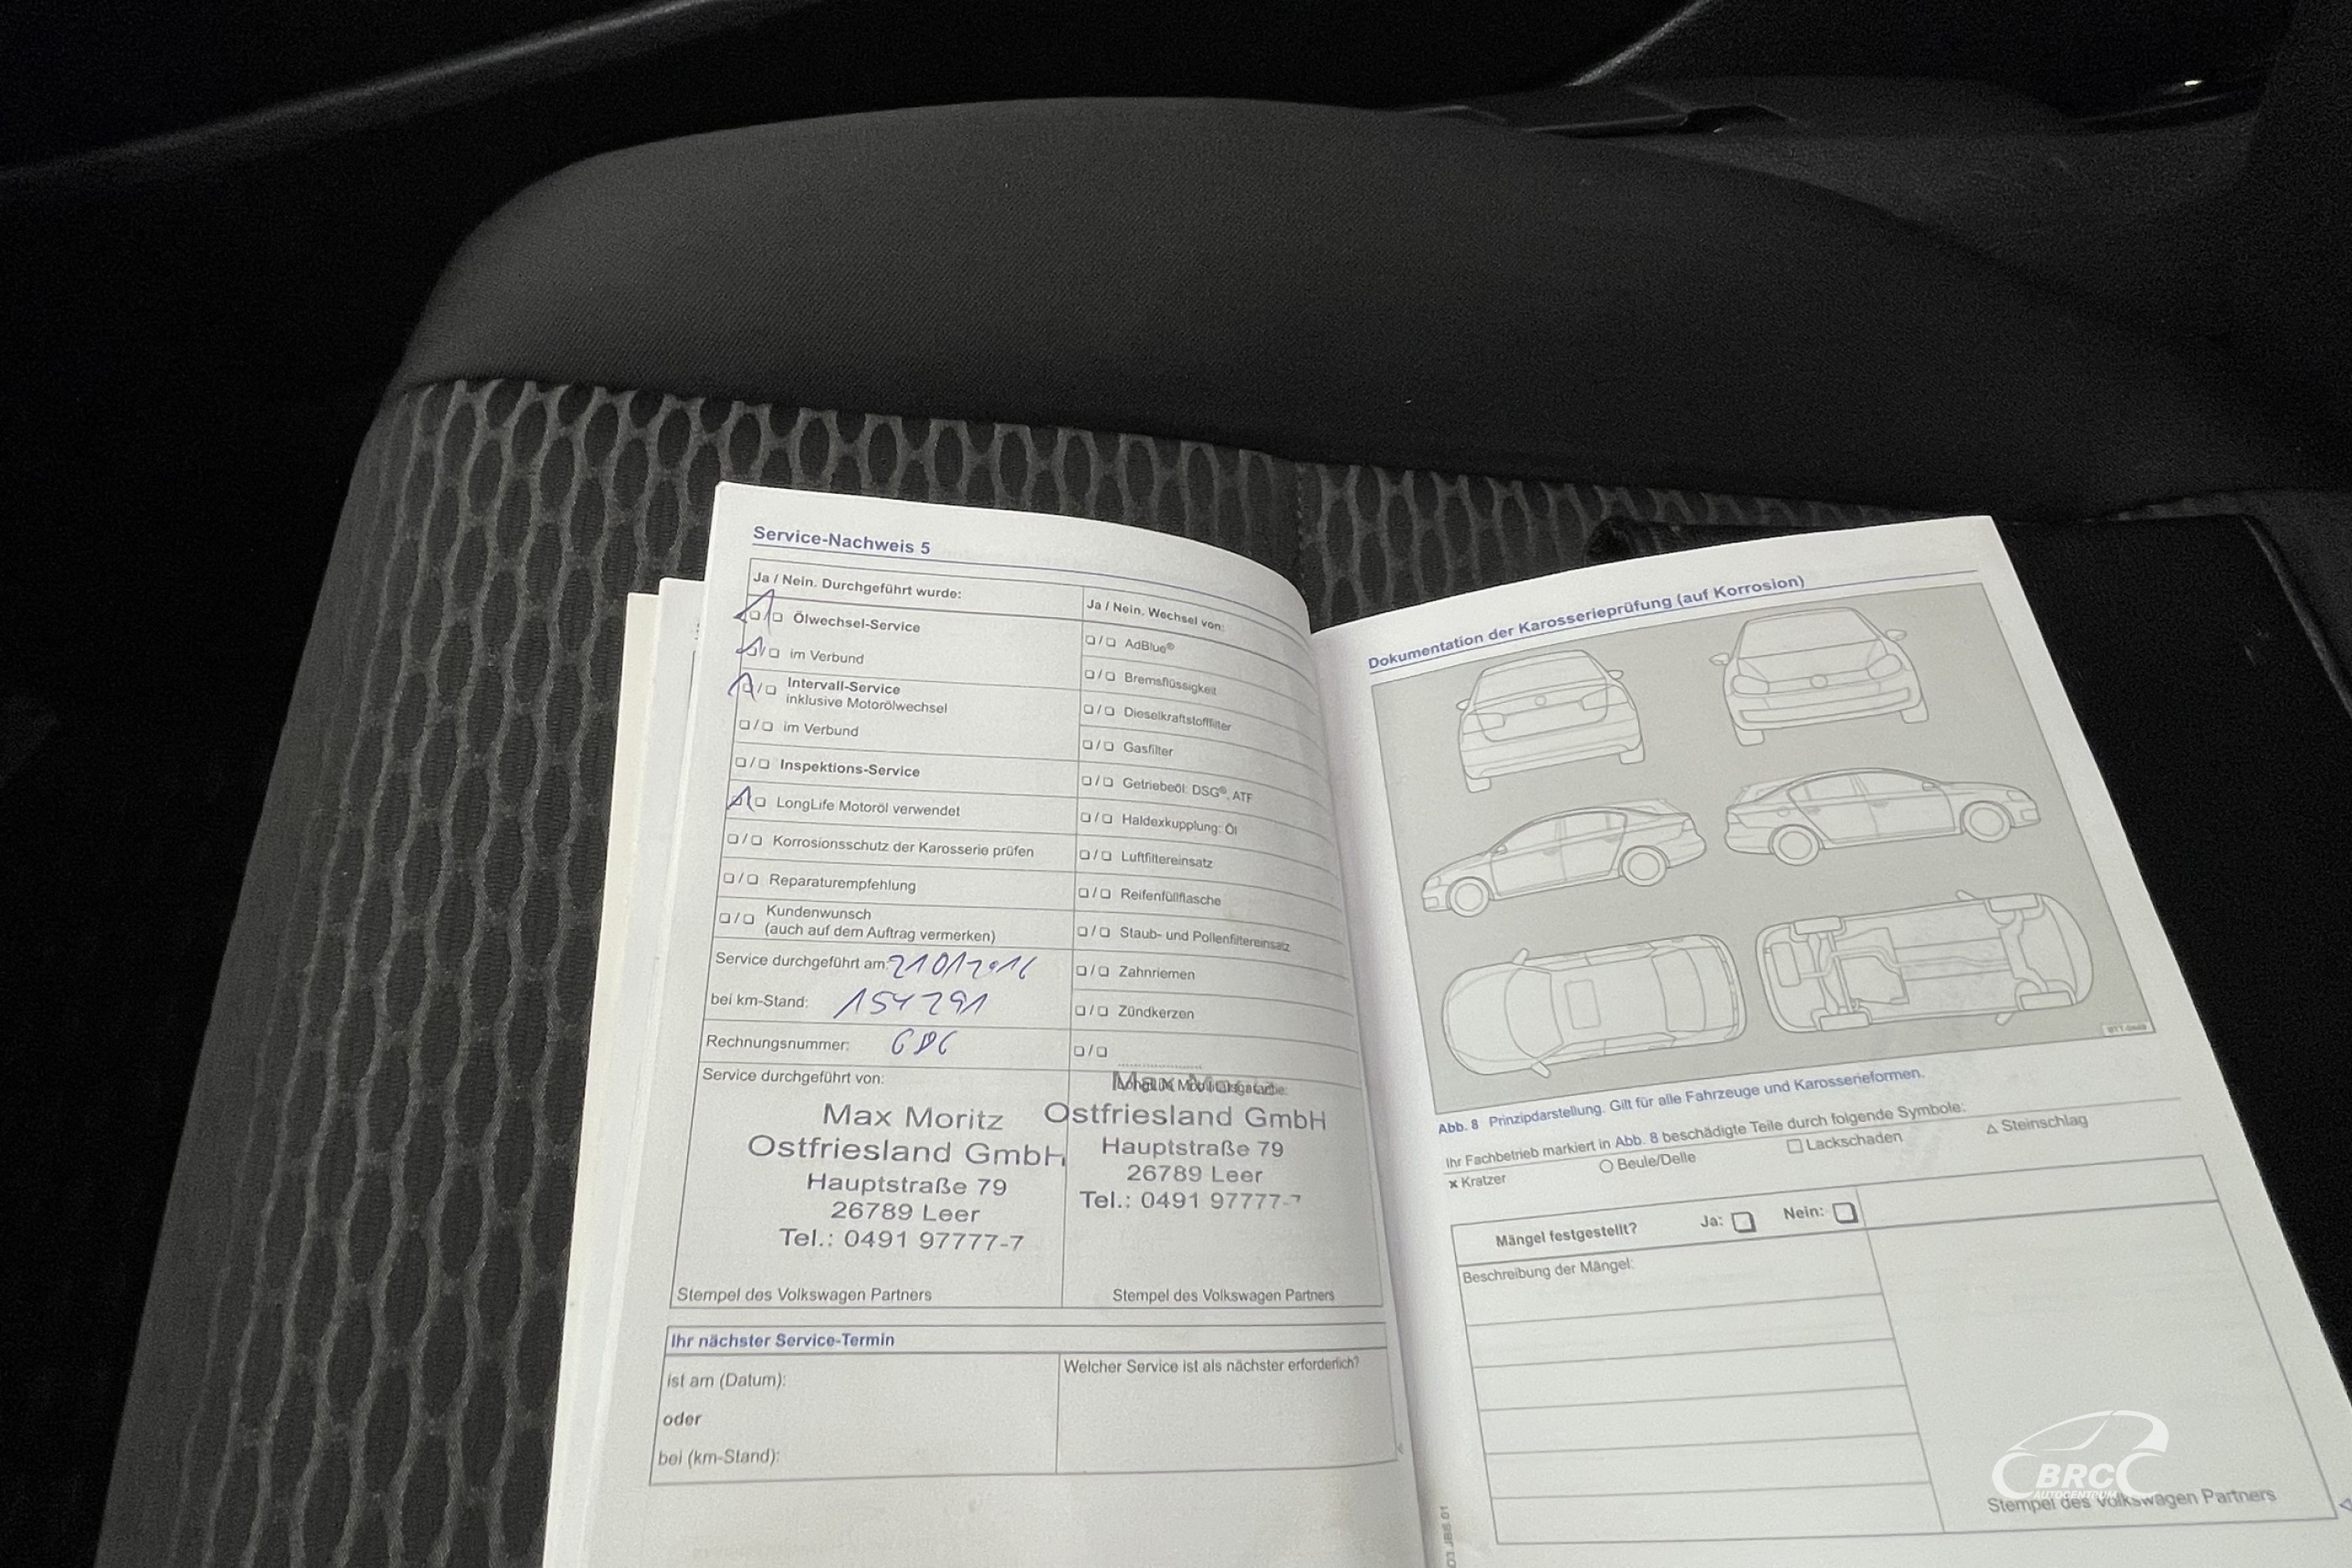 Service-Nachweis 5
Ja / Nein. Durchgeführt wurde:
Ölwechsel-Service
im Verbund
Intervall-Service
inklusive Motorölwechsel
im Verbund
Inspektions-Service
LongLife Motoröl verwendet
Korrosionsschutz der Karosserie prüfen
Reparaturempfehlung
Kundenwunsch
(auch auf dem Auftrag vermerken)
Service durchgeführt am:
bei km-Stand: 154291
Rechnungsnummer:
Service durchgeführt von:
Max Moritz
Ostfriesland GmbH
Hauptstraße 79
26789 Leer
Tel.: 0491 97777-7
Stempel des Volkswagen Partners
Ja / Nein. Wechsel von:
AdBlue®
Bremsflüssigkeit
Dieselkraftstofffilter
Gasfilter
Getriebeöl: DSG®, ATF
Haldexkupplung: Öl
Luftfiltereinsatz
Reifenfüllflasche
Staub- und Pollenfiltereinsatz
Zahnriemen
Zündkerzen
Ostfriesland GmbH
Hauptstraße 79
26789 Leer
Tel.: 0491 97777-7
Stempel des Volkswagen Partners
Ihr nächster Service-Termin
ist am (Datum):
oder
bei (km-Stand):
Welcher Service ist als nächster erforderlich?
Dokumentation der Karosserieprüfung (auf Korrosion)
Abb. 8 Prinzipdarstellung. Gilt für alle Fahrzeuge und Karosserieformen.
Ihr Fachbetrieb markiert in Abb. 8 beschädigte Teile durch folgende Symbole:
x Kratzer ○ Beule/Delle □ Lackschaden △ Steinschlag
Mängel festgestellt? Ja: Nein:
Beschreibung der Mängel:
Stempel des Volkswagen Partners
BRC
AUTOCENTRUM